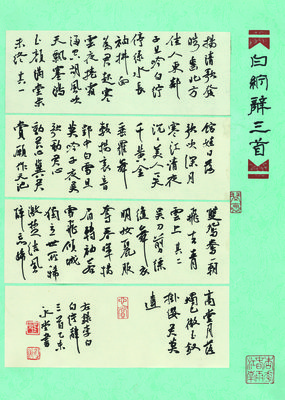 白紵辭三首
揚清歌發
皓齒北方
佳人東鄰
子旦吟白紵
停綠水長
袖拂面
為君起寒
雲夜捲霜
海空胡風吹
天飄塞鴻
玉顏滿堂樂
未終其一
館娃日落
歌吹深月
寒江清夜
沉沉美人一笑
千黃金
垂羅舞
縠揚哀音
郢中白雪且
莫吟子夜吳
歌動君心
動君心冀君
賞願作天池
雙鴛鴦一朝
飛去青
雲上其二
吳刀剪綵
縫舞衣
明妝麗服
奪春暉揚
眉轉袖若
雪飛傾城
獨立世所稀
激楚結風
醉忘歸
高堂月落
燭已微玉釵
掛纓君莫
違
右錄李白
白紵辭
三首乙未
書